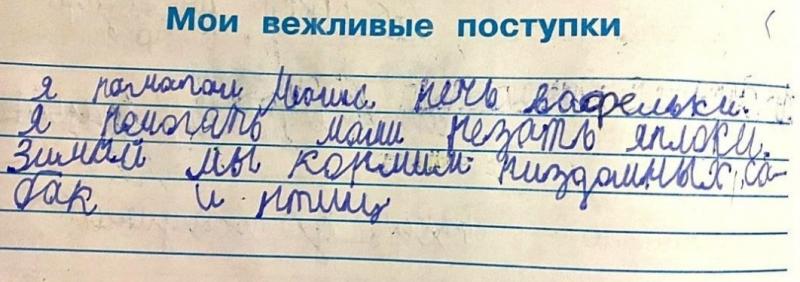 Мои вежливые поступки
я памагал Мамие печь вафельки.
Я помогать мами резать яплоки.
Зимай мы кормим пиздамных са-
бак и птиц